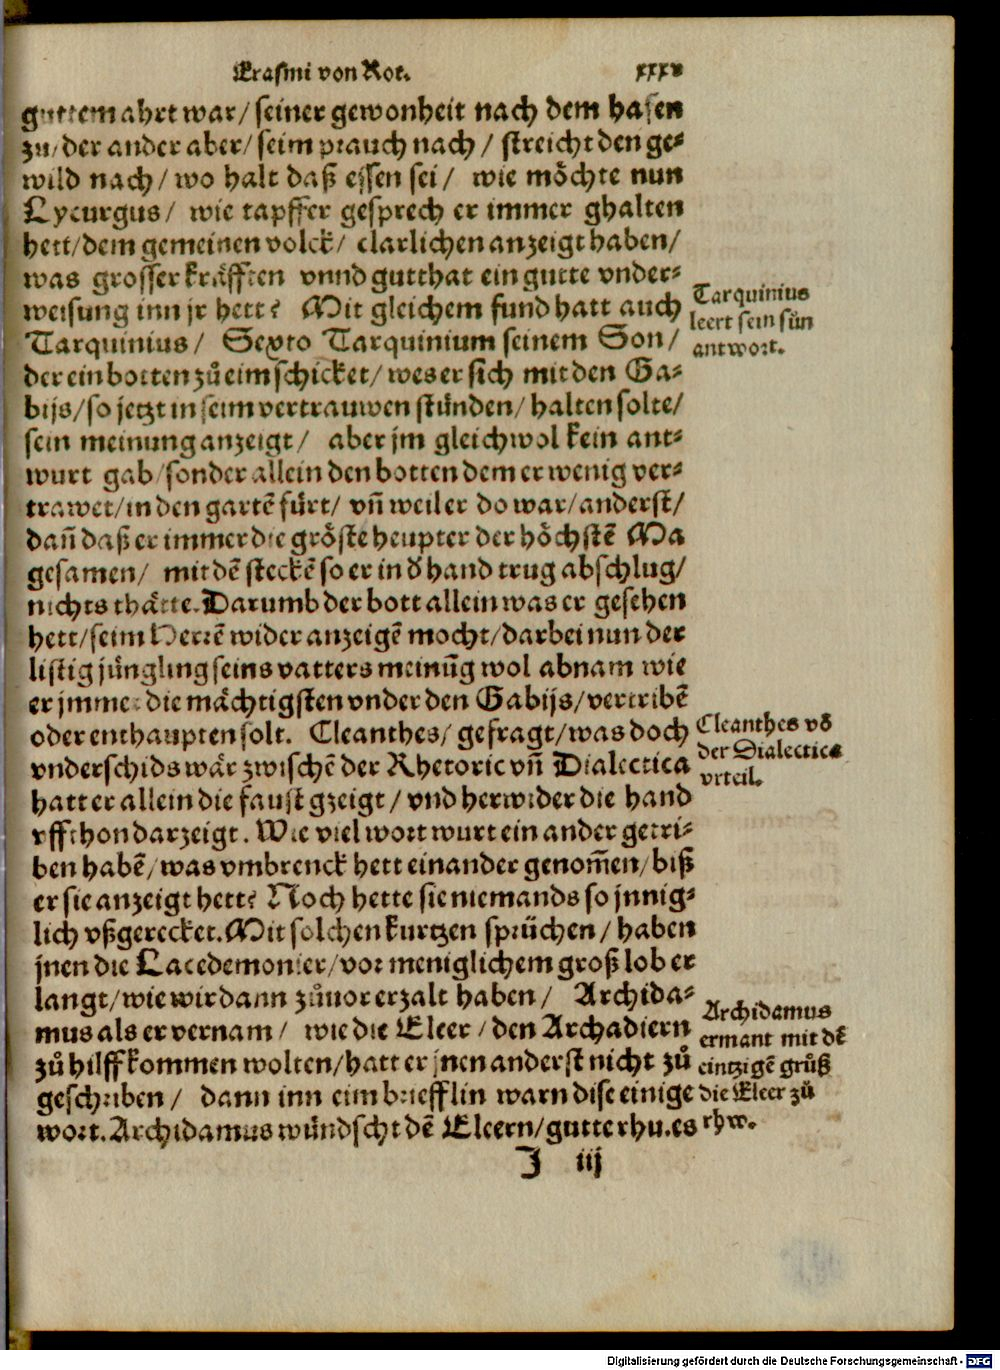 Erasmi von Rot. xxxv
guttem ahrt war/ seiner gewonheit nach dem hasen
zu/ der ander aber/ seim prauch nach/ streicht den ge⸗
wild nach/ wo halt daß essen sei/ wie moͤchte nun
Lycurgus/ wie tapffer gesprech er immer ghalten
hett/ dem gemeinen volck/ clarlichen anzeigt haben/
was grosser kraͤfften vnnd gutthat ein gutte vnder⸗
weisung inn jr hett? Mit gleichem fund hatt auch
Tarquinius/ Sexto Tarquinium seinem Son/
der ein botten zuͦ eim schicket/ wes er sich mit den Ga⸗
bijs/ so jetzt in seim vertrauwen stuͤnden/ halten solte/
sein meinung anzeigt/ aber jm gleichwol kein ant⸗
wurt gab/ sonder allein den botten dem er wenig ver⸗
trawet/ in den gartẽ fuͤrt/ vñ weil er do war/ anderst/
dañ daß er immer die groͤste heupter der hoͤchstẽ Ma
gesamen/ mit dẽ steckẽ so er in d̕ hand trug abschlug/
nichts thaͤtte. Darumb der bott allein was er gesehen
hett/ seim Herrẽ wider anzeigẽ mocht/ darbei nun der
listig juͤngling seins vatters meinũg wol abnam wie
er jmmer die maͤchtigsten vnder den Gabijs/ vertribẽ
oder enthaupten solt. Cleanthes/ gefragt/ was doch
vnderschids waͤr zwischẽ der Rhetoric vñ Dialectica
hatt er allein die faust gzeigt/ vnd herwider die hand
vffthon darzeigt. Wie viel wort wurt ein ander getri⸗
ben habẽ/ was vmbrenck hett einander genom̃en/ biß
er sie anzeigt hett? Noch hette sie niemands so jnnig⸗
lich vßgerecket. Mit solchen kurtzen spruͤchen/ haben
jnen die Lacedemonier/ vor meniglichem groß lob er
langt/ wie wir dann zuͦuor erzalt haben/ Archida⸗
mus als er vernam/ wie die Eleer/ den Archadiern
zuͦ hilff kommen wolten/ hatt er jnen anderst nicht zuͦ
geschriben/ dann inn eim briefflin warn dise einige
wort. Archidamus wuͤndscht dẽ Eleern/ gutte rhu. es
J iij
Tarquinius
leert sein suͤn
antwort.
Cleanthes võ
der Dialectica
vrteil.
Archidamus
ermant mit dẽ
eintzigẽ gruͦß
die Eleer zuͦ
rhw.
Digitalisierung gefördert durch die Deutsche Forschungsgemeinschaft - DFG